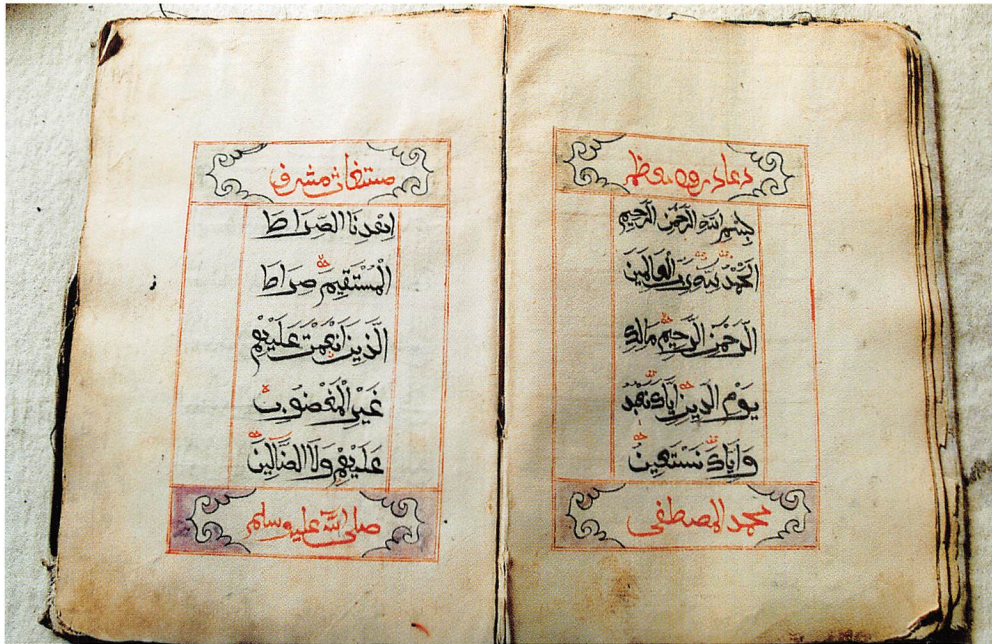 دعا درود معظم
بِسْمِ اللهِ الرَّحْمٰنِ الرَّحِيْمِ
اَلْحَمْدُ لِلّٰهِ رَبِّ الْعَالَمِيْنَ
الرَّحْمٰنِ الرَّحِيْمِ مَالِكِ
يَوْمِ الدِّيْنِ اِيَّاكَ نَعْبُدُ
وَاِيَّاكَ نَسْتَعِيْنُ
محمد المصطفى
مستغاث مشرف
اِهْدِنَا الصِّرَاطَ
الْمُسْتَقِيْمَ صِرَاطَ
الَّذِيْنَ اَنْعَمْتَ عَلَيْهِمْ
غَيْرِ الْمَغْضُوْبِ
عَلَيْهِمْ وَلَا الضَّالِّيْنَ
صلى الله عليه وسلم